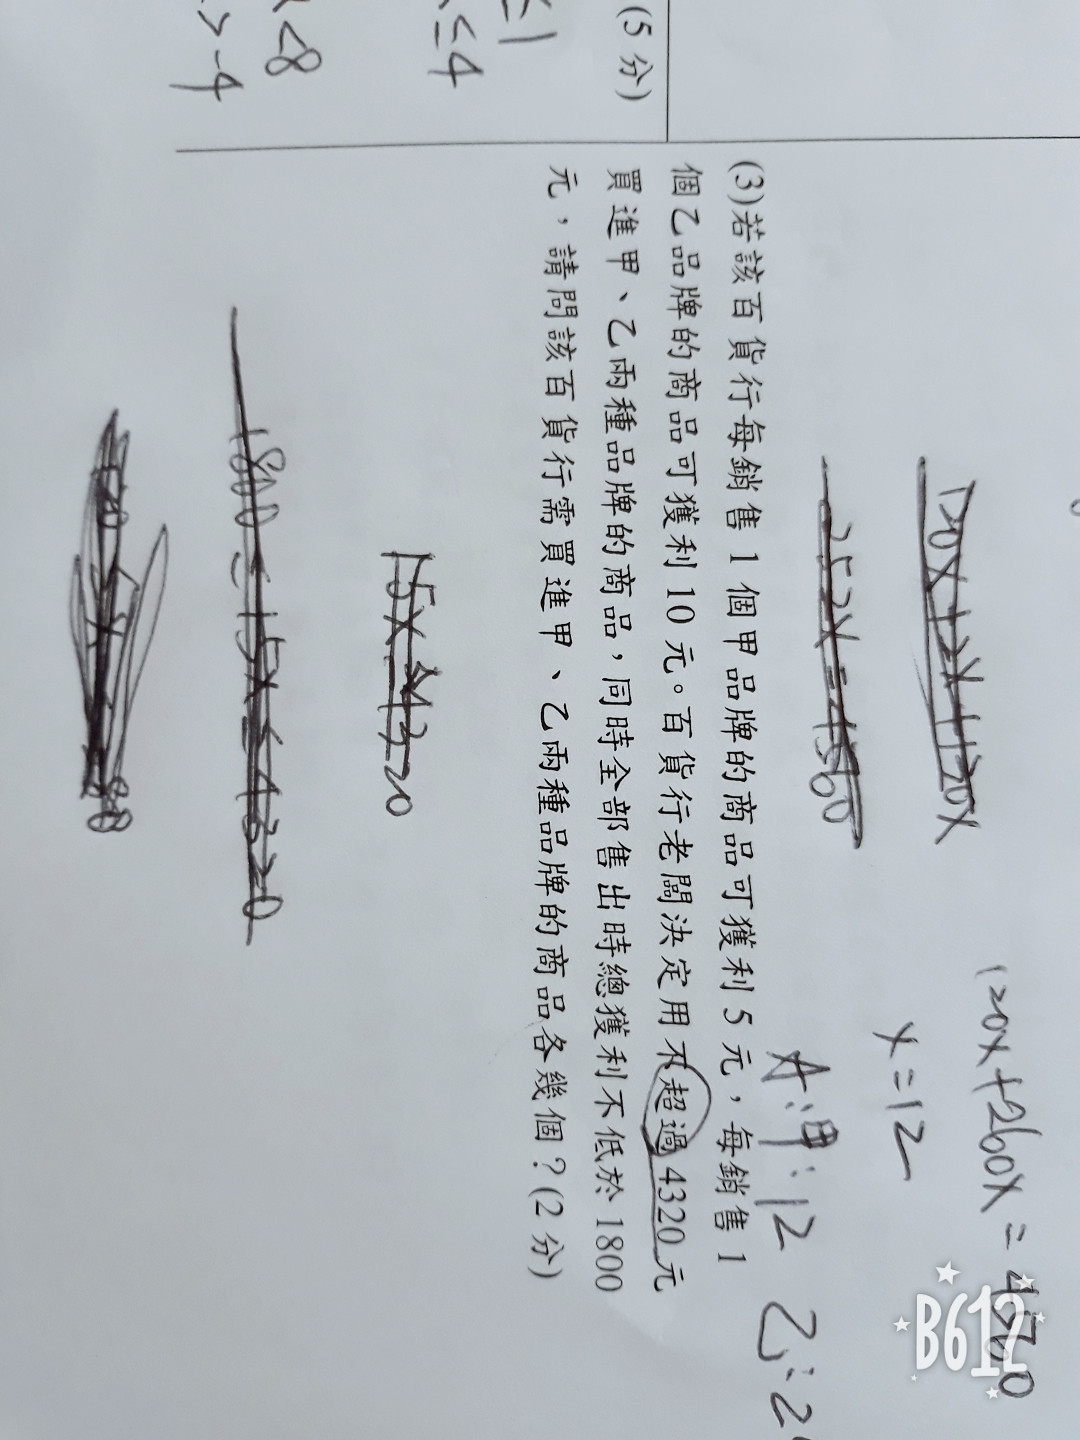 120X+260X=4560
120X+2X+120X
X=12
252X=4560
A:甲:12 乙:2
(3)若該百貨行每銷售1個甲品牌的商品可獲利5元，每銷售1
個乙品牌的商品可獲利10元。百貨行老闆決定用不超過4320元
買進甲、乙兩種品牌的商品，同時全部售出時總獲利不低於1800
元，請問該百貨行需買進甲、乙兩種品牌的商品各幾個？(2分)
15X 4320
1800≤15X≤4320
(5分)
≤1
≤4
<8
>-4
B612